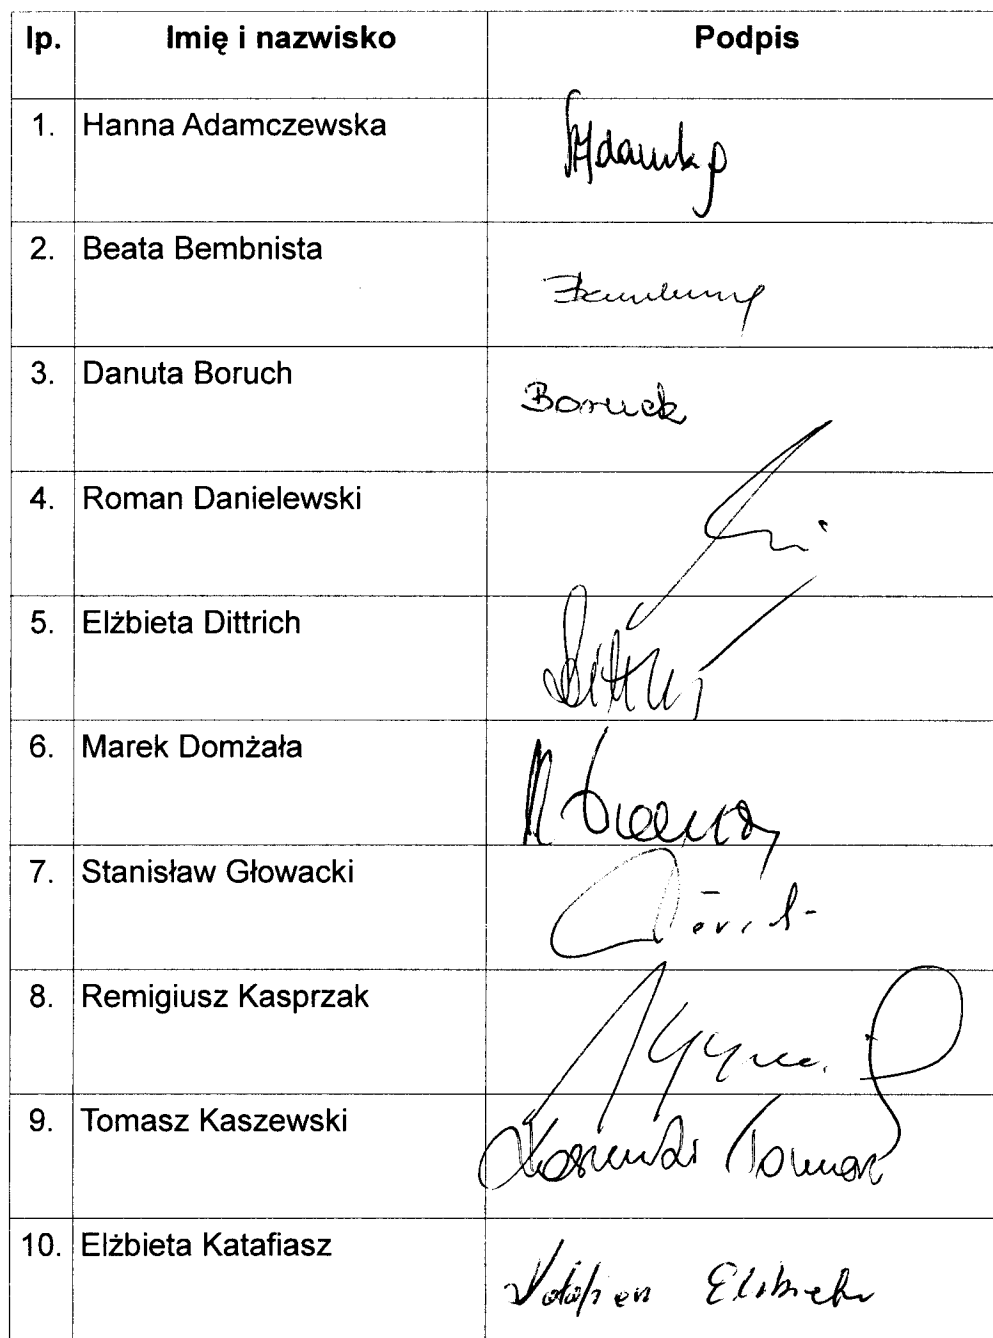 lp. Imię i nazwisko Podpis
1. Hanna Adamczewska
2. Beata Bembnista
3. Danuta Boruch Boruch
4. Roman Danielewski
5. Elżbieta Dittrich
6. Marek Domżała
7. Stanisław Głowacki
8. Remigiusz Kasprzak
9. Tomasz Kaszewski Kaszewski Tomasz
10. Elżbieta Katafiasz Elżbieta